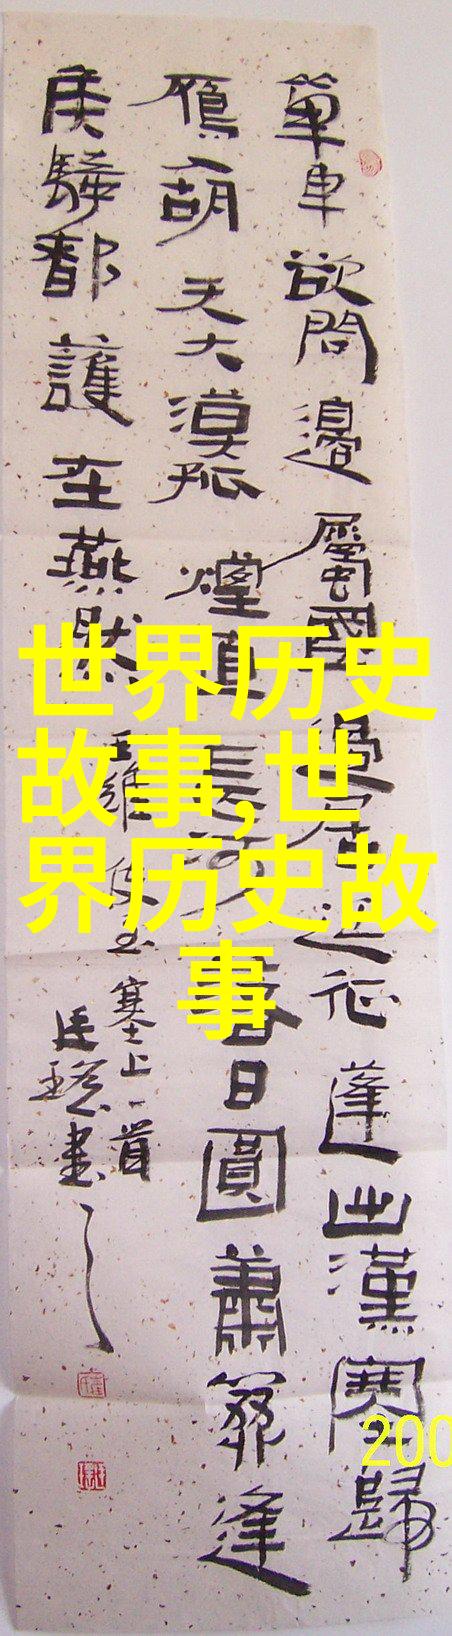 單車欲問邊屬國過居延征蓬出漢塞歸
鴈入胡天大漠孤煙直長河落日圓蕭關逢
侯騎都護在燕然
王維使至塞上一首
書
世界历史
故事,世
界历史故
事
200